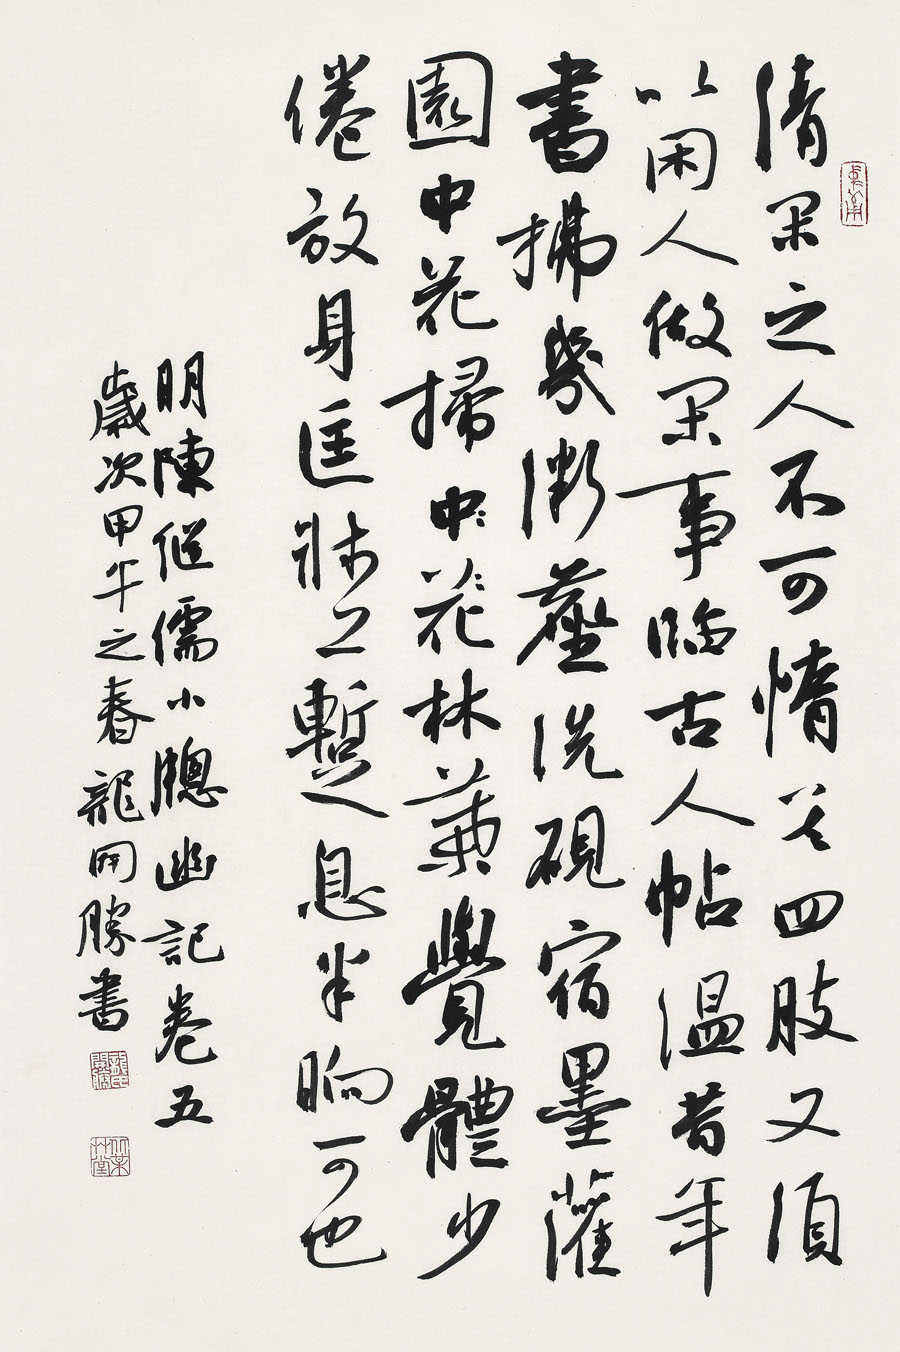 清閑之人不可惰其四肢又須
以閑人做閑事臨古人帖温昔年
書拂幾微塵洗硯宿墨灌
園中花掃中花林葉覺體少
倦放身匡牀上暫息半晌可也
明陳繼儒小牕幽記卷五
歲次甲午之春龍開勝書
龍氏開勝